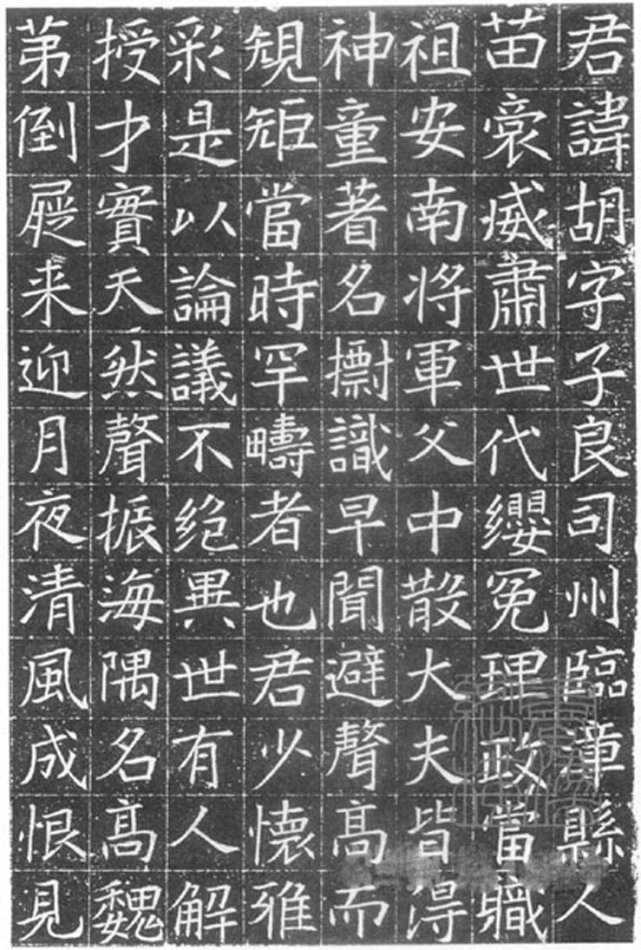 君諱胡字子良司州臨漳縣人
苗裔威肅世代纓冕理政當職
祖安南将軍父中散大夫皆得
神童著名識早聞避聲高而
規矩當時罕疇者也君少懷雅
彩是以論議不絶異世有人解
授才實天然聲振海隅名高魏
苐倒屣来迎月夜清風成恨見